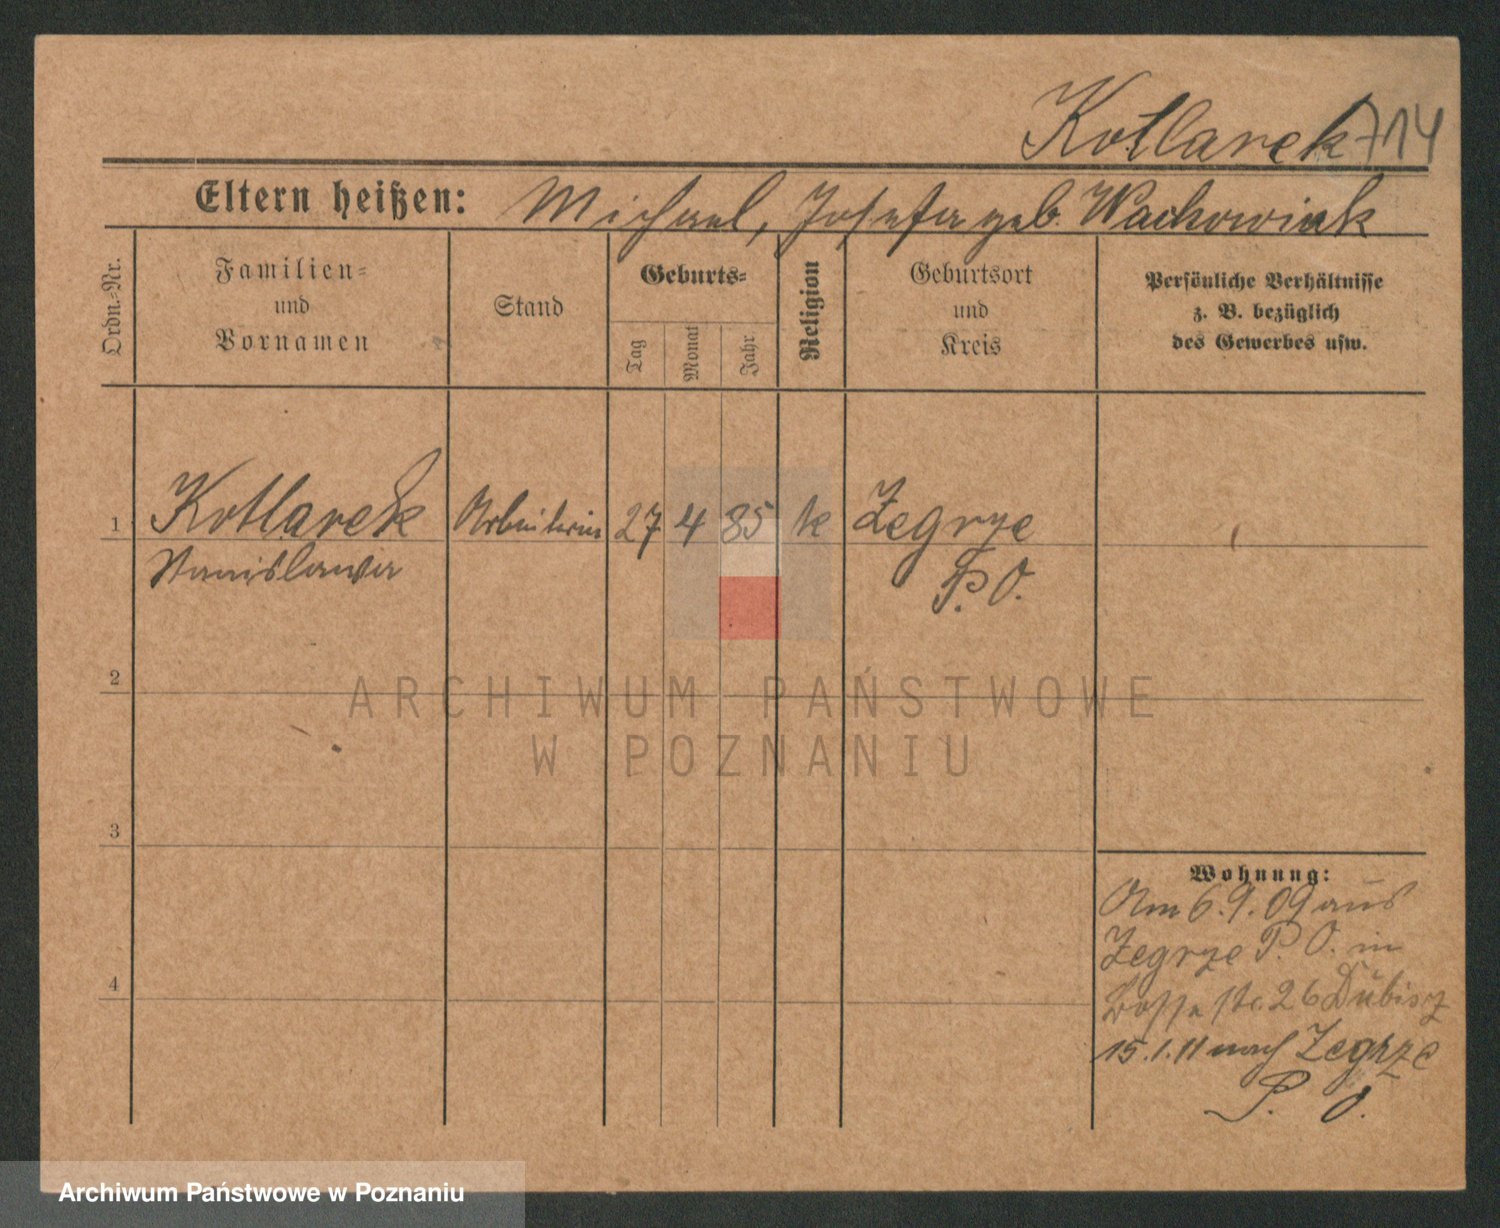 Kotlarek 714
Eltern heißen: Michael, Josefa geb. Wachowiak
Ordn.-Nr.
Familien-
und
Vornamen
Stand
Geburts-
Tag
Monat
Jahr
Religion
Geburtsort
und
Kreis
Persönliche Verhältnisse
z. B. bezüglich
des Gewerbes usw.
1 Kotlarek Arbeiterin 27 4 85 k Zegrze
Stanislawa P. O.
2
3
4
ARCHIWUM PAŃSTWOWE
W POZNANIU
Wohnung:
Am 6.9.09 aus
Zegrze P. O. in
str. 26 Dubisz
15.1.11 nach Zegrze
P. O.
Archiwum Państwowe w Poznaniu